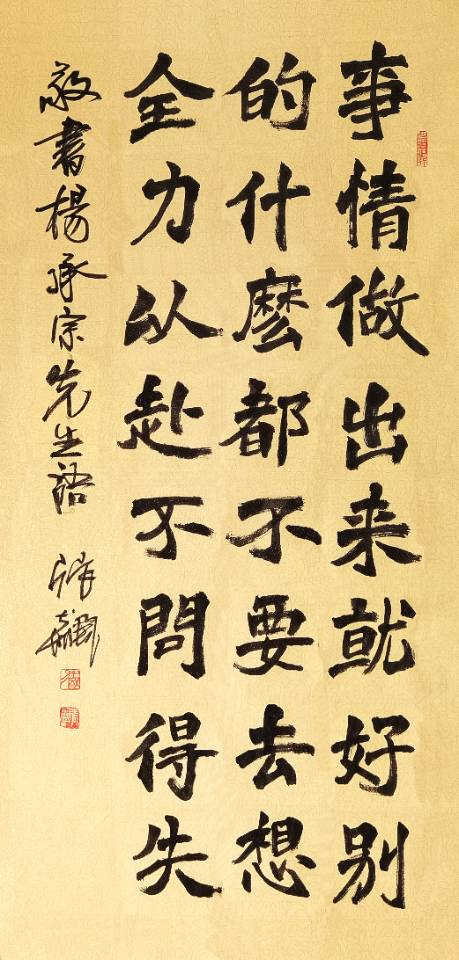 事情做出来就好别
的什麽都不要去想
全力从赴不問得失
敬書楊承宗先生語